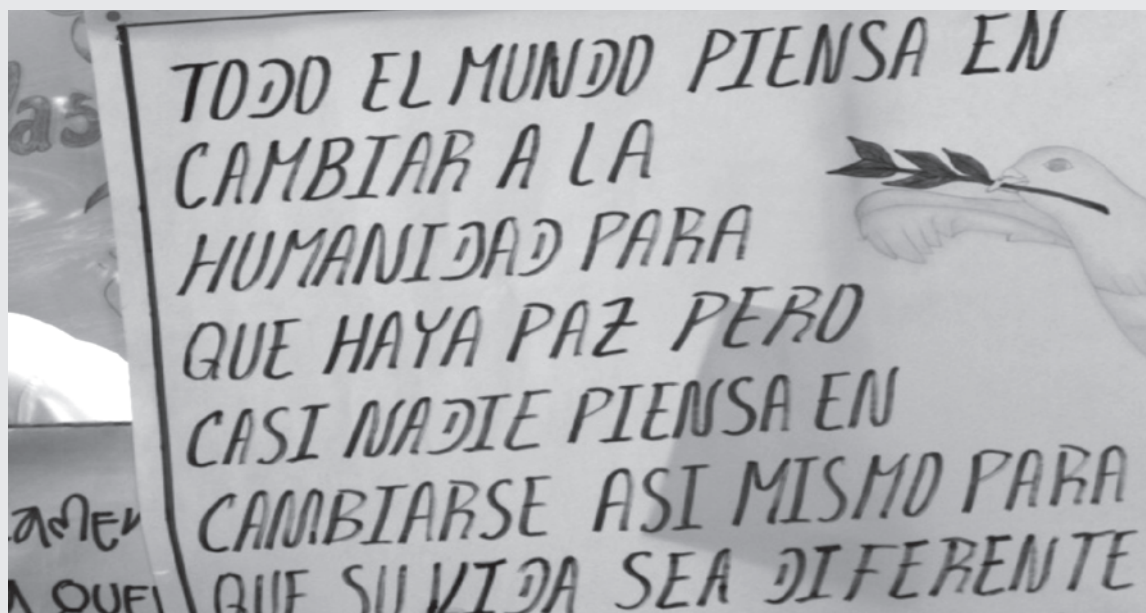 las
TODO EL MUNDO PIENSA EN
CAMBIAR A LA
HUMANIDAD PARA
QUE HAYA PAZ PERO
CASI NADIE PIENSA EN
CAMBIARSE ASI MISMO PARA
QUE SU VIDA SEA DIFERENTE